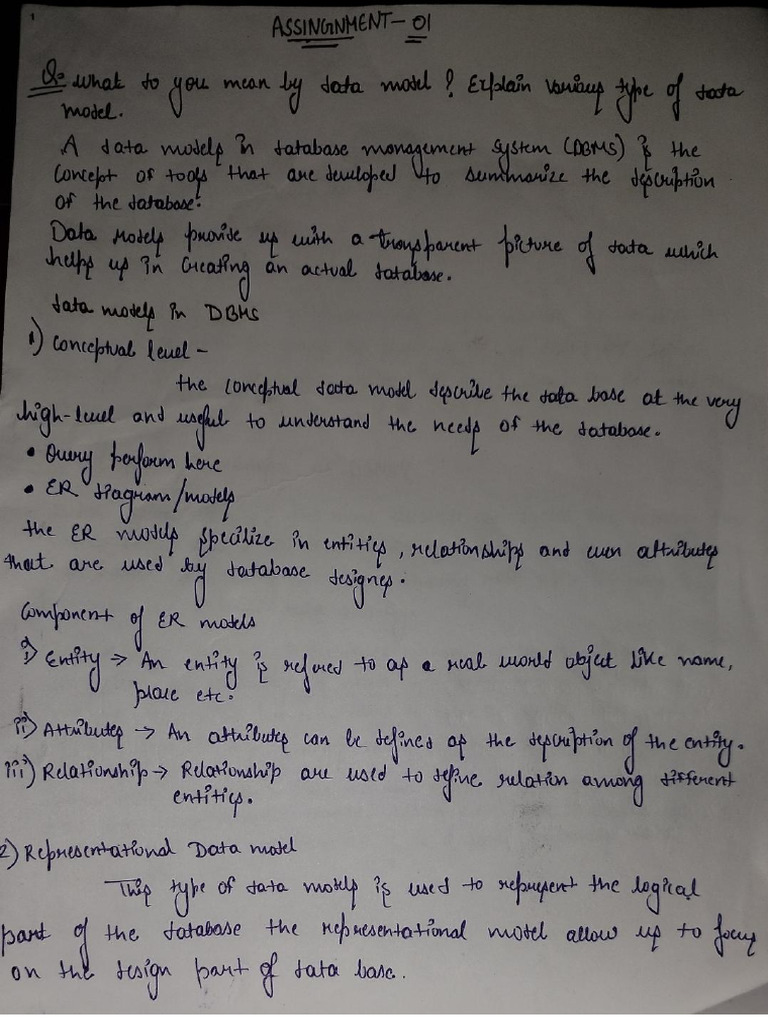 1
ASSINGNMENT - 01
Q= what do you mean by data model? Explain various type of data
model.
A data models in database management system (DBMS) is the
concept of tools that are developed to summarize the description
of the database.
Data models provide us with a transparent picture of data which
helps us in creating an actual database.
data models in DBMS
1) conceptual level -
the conceptual data model describe the data base at the very
high-level and useful to understand the needs of the database.
• Query perform here
• ER diagram/models
the ER models specilize in entities, relationships and even attributes
that are used by database designes.
Component of ER models
i) Entity → An entity is refered to as a real world object like name,
place etc.
ii) Attributes → An attributes can be defines as the description of the entity.
iii) Relationship → Relationship are used to define relation among different
entities.
2) Representational Data model
This type of data models is used to represent the logical
part of the database the representational model allow us to focus
on the design part of data base.